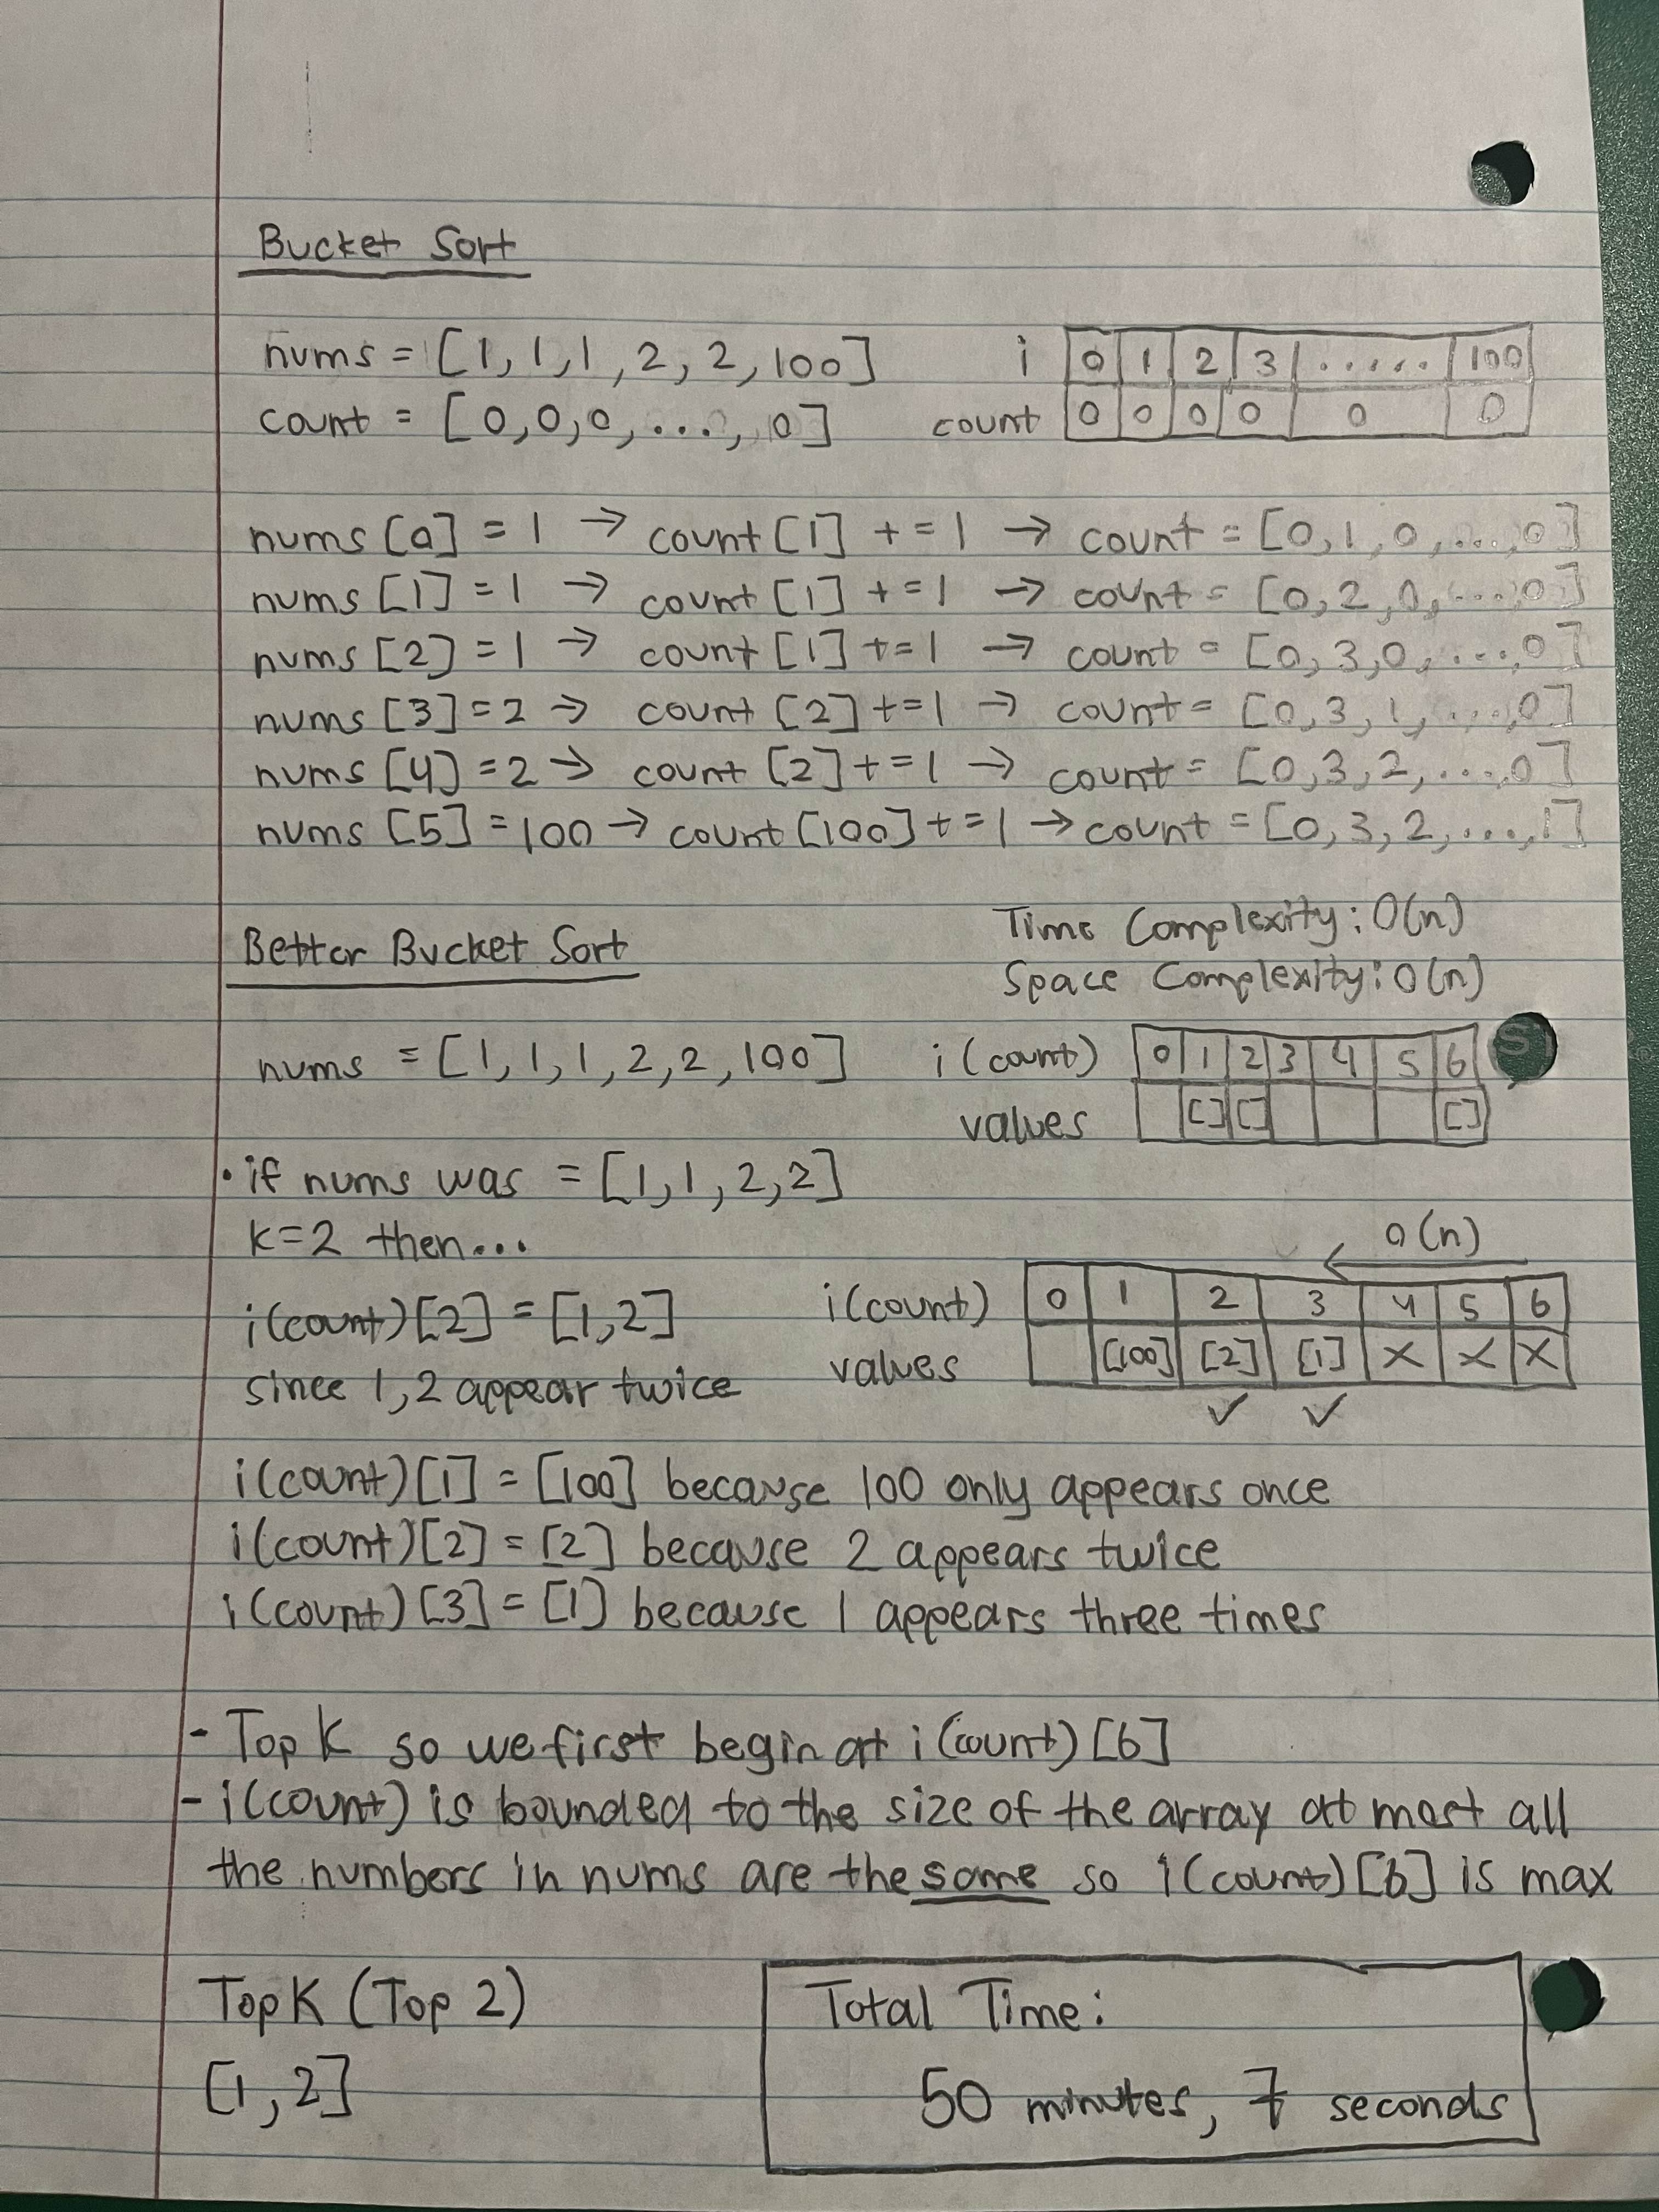 Bucket Sort
nums = [1, 1, 1, 2, 2, 100]
count = [0, 0, 0, ..., 0]
i 0 1 2 3 ...... 100
count 0 0 0 0 0 0
nums [0] = 1 → count [1] += 1 → count = [0, 1, 0, ..., 0]
nums [1] = 1 → count [1] += 1 → count = [0, 2, 0, ..., 0]
nums [2] = 1 → count [1] += 1 → count = [0, 3, 0, ..., 0]
nums [3] = 2 → count [2] += 1 → count = [0, 3, 1, ..., 0]
nums [4] = 2 → count [2] += 1 → count = [0, 3, 2, ..., 0]
nums [5] = 100 → count [100] += 1 → count = [0, 3, 2, ..., 1]
Time Complexity: O(n)
Space Complexity: O(n)
Better Bucket Sort
nums = [1, 1, 1, 2, 2, 100]
i (count) 0 1 2 3 4 5 6
values [] [] []
• if nums was = [1, 1, 2, 2]
k=2 then...
i(count)[2] = [1,2]
since 1, 2 appear twice
O(n)
i(count) 0 1 2 3 4 5 6
values [100] [2] [1] X X X
✓ ✓
i(count)[1] = [100] because 100 only appears once
i(count)[2] = [2] because 2 appears twice
i(count)[3] = [1] because 1 appears three times
- Top K so we first begin at i(count)[6]
- i(count) is bounded to the size of the array at most all
the numbers in nums are the same so i(count)[6] is max
Top K (Top 2)
[1, 2]
Total Time:
50 minutes, 7 seconds